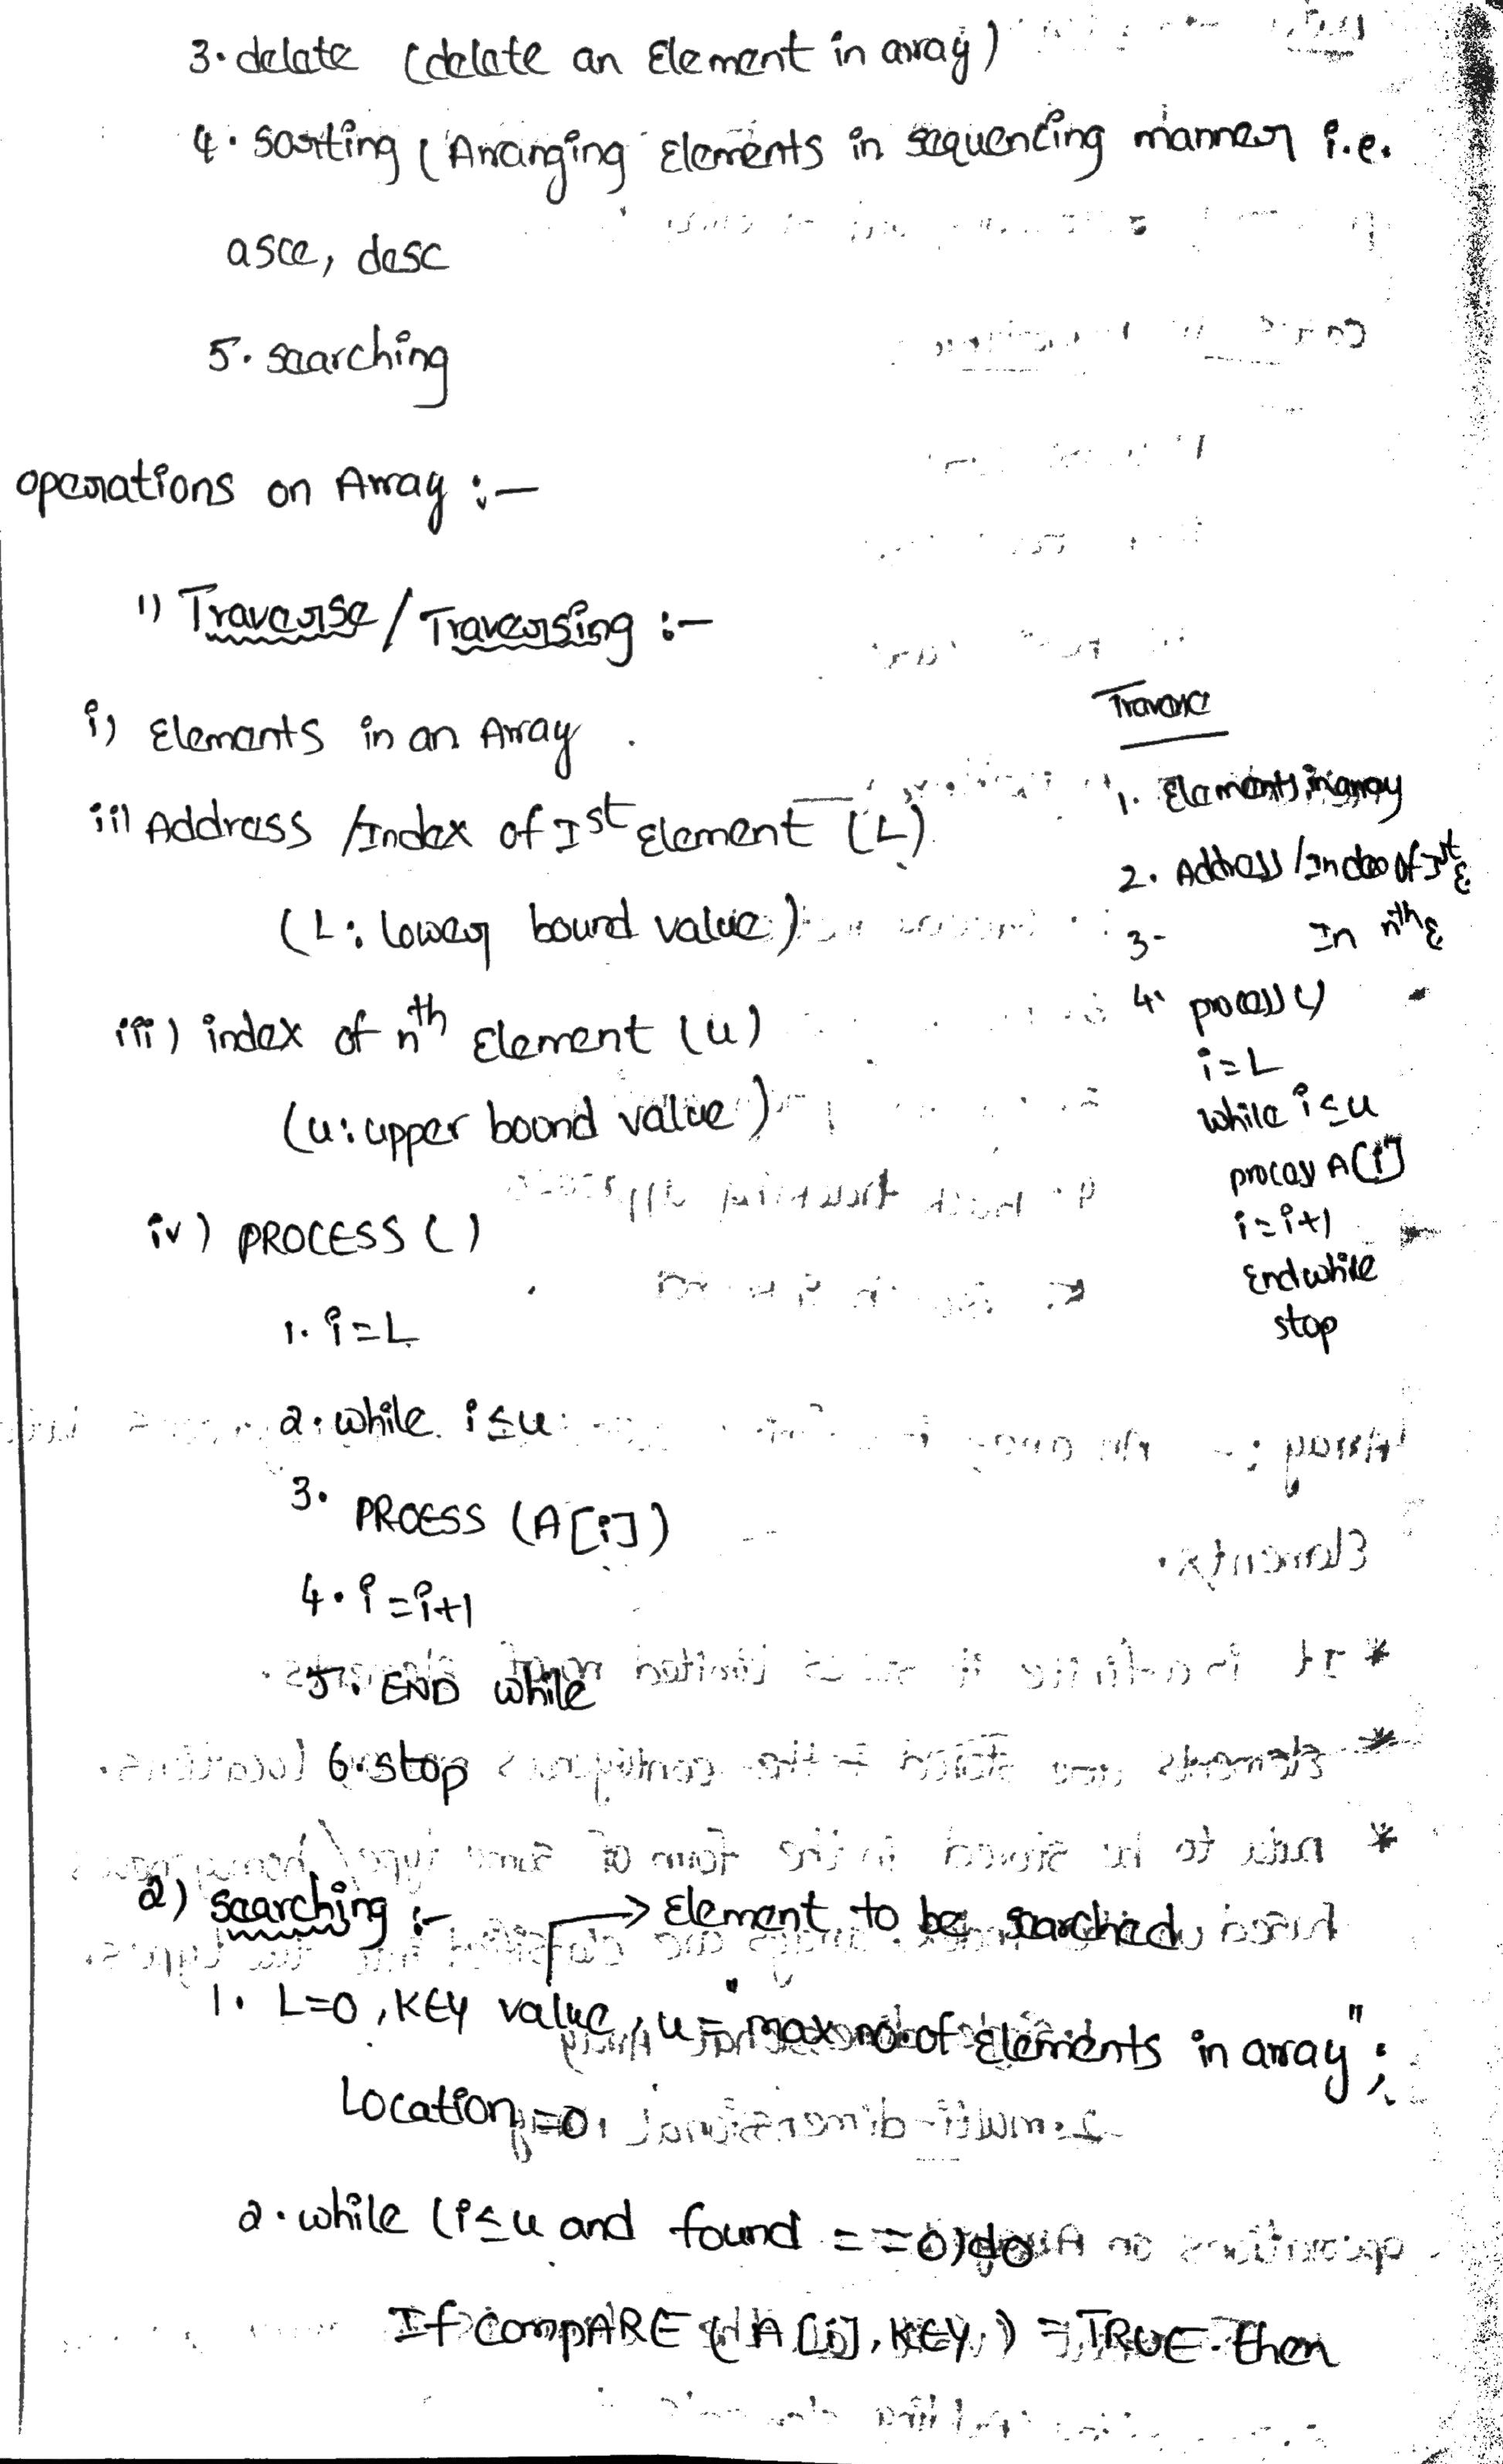 3. delete (delete an Element in array)
4. sorting (Arranging Elements in sequencing manner i.e.
asce, desc
5. searching
operations on Array :-
1) Traverse / Traversing :-
i) Elements in an Array
ii) Address /Index of Ist Element (L)
(L: lower bound value)
iii) index of nth Element (u)
(u: upper bound value)
iv) PROCESS ()
1. i=L
2. while i≤u
3. PROESS (A[i])
4. i=i+1
5. END while
6. stop
Traverse
1. Elements in array
2. Address /Index of Ist E
3- In nth E
4. process ()
i=L
while i≤u
process A[i]
i=i+1
End while
stop
2) searching :-
→ Element to be searched
1. L=0, KEY value, u= "max no. of Elements in array";
Location=0,
2. while (i≤u and found ==0) do
If compARE (A[i], KEY) = TRUE then